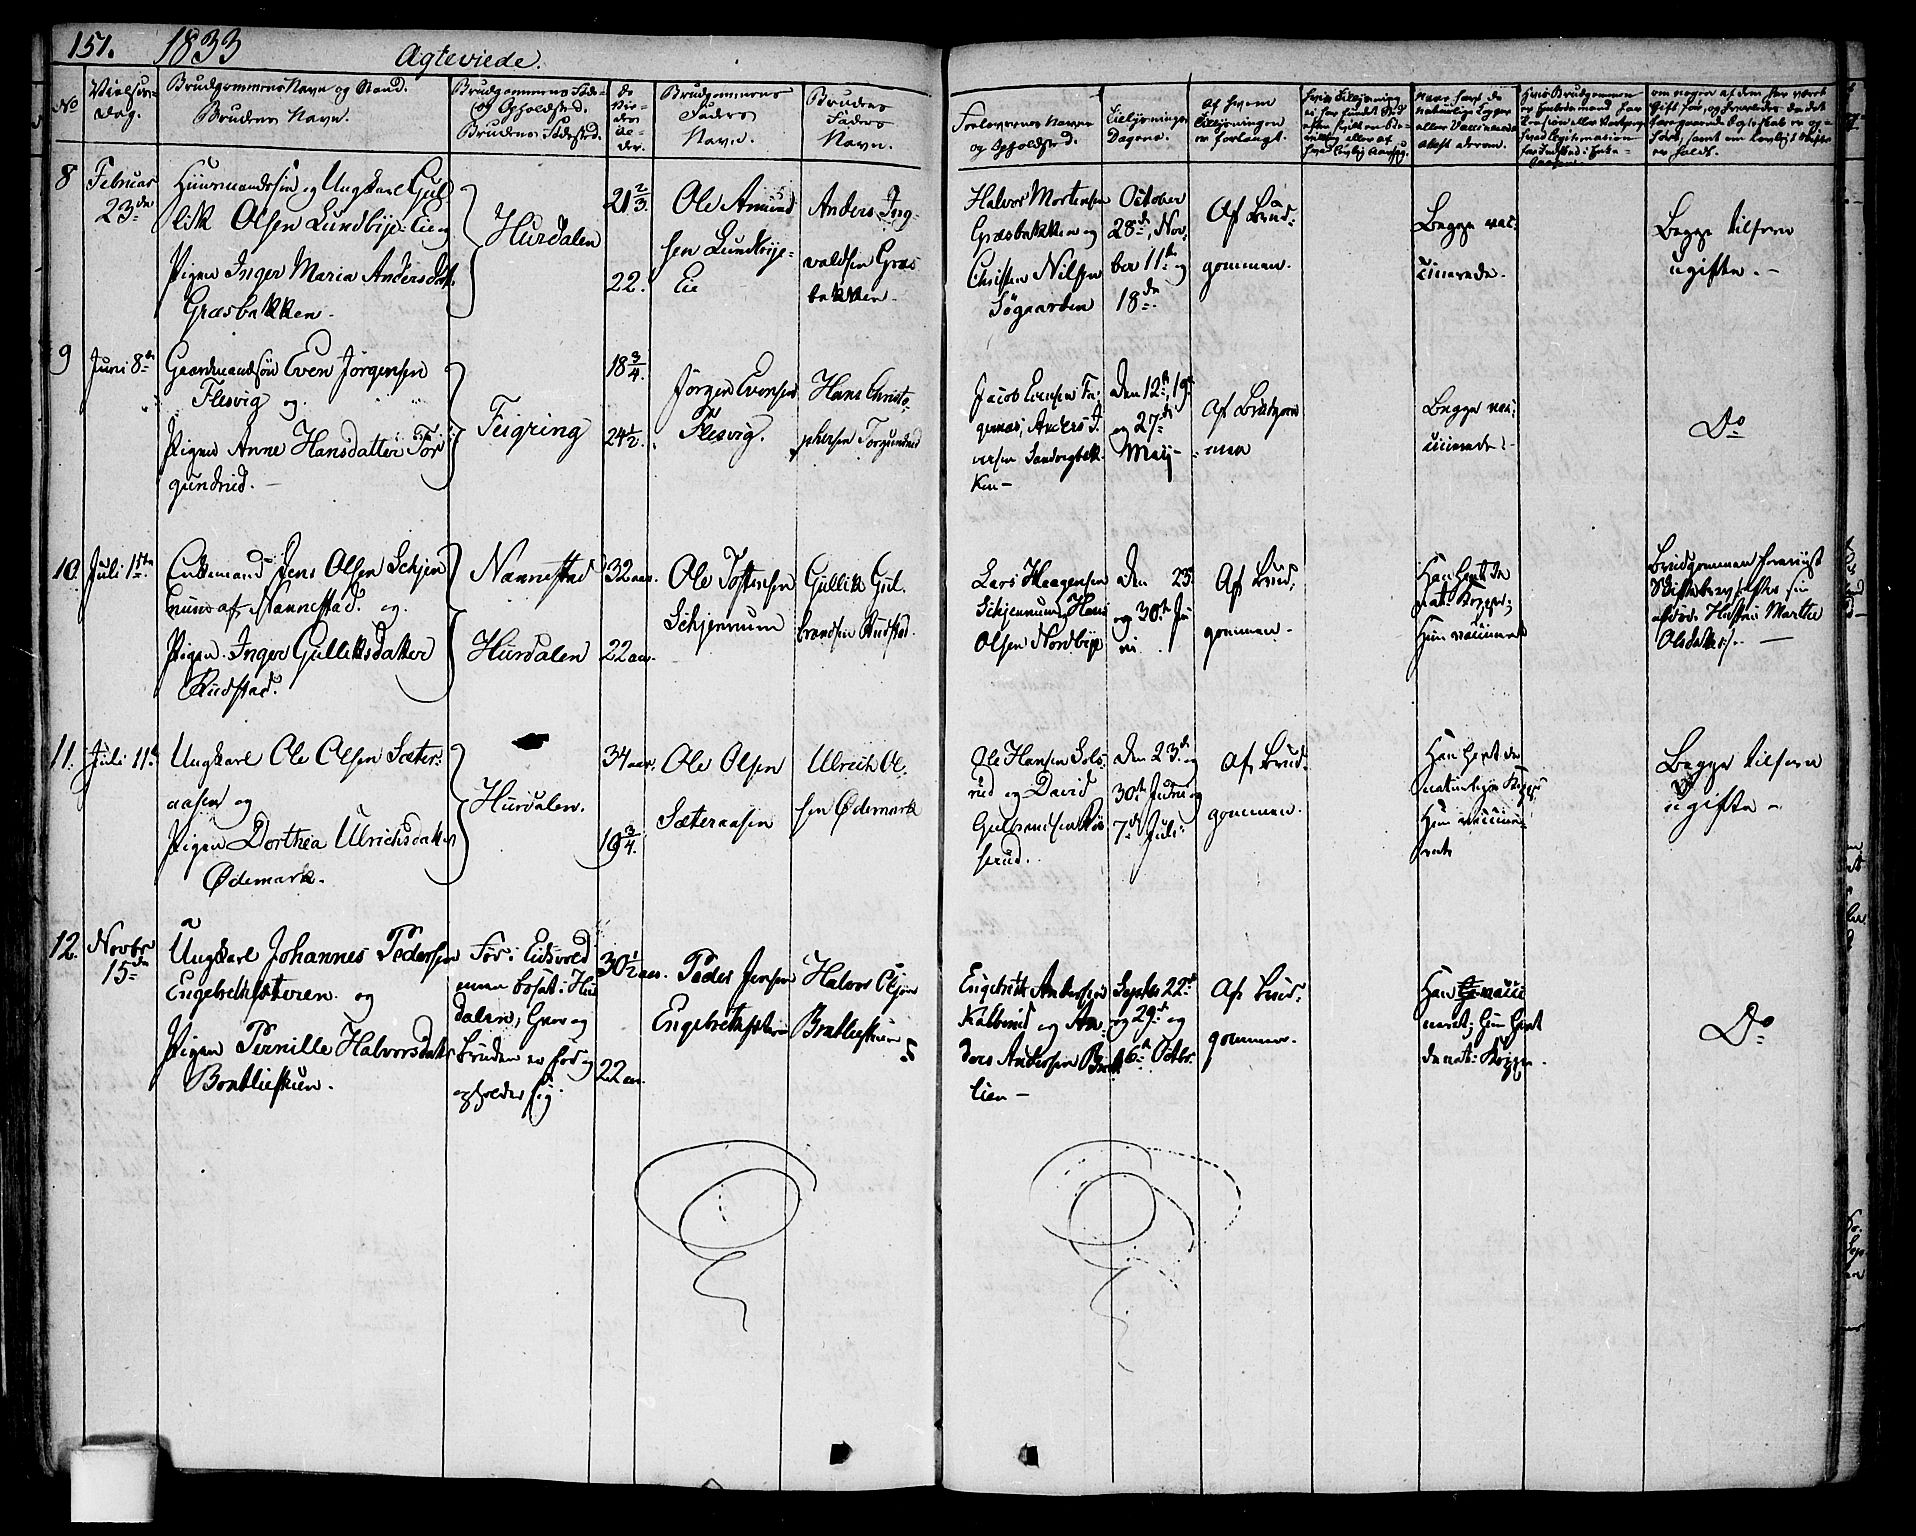 151. 1833 Agteviede.
No
Vielses-
Dag.
Brudgommens Navn og Stand.
Brudens Navn.
Brudgommens Føde-
og Opholdsted.
Brudens Fødested.
Brudgommens
Faders
Navn.
Brudens
Faders
Navn.
Forlovernes Navne
og Opholdsted.
Tillysnings
Dagene.
Af hvem
Tillysningen
er forlangt.
8 Februar
23de
Huusmandssøn og Ungkarl Gul
lik Olsen Lundbye-Eie og
Pigen Inger Maria Andersdatr
Græsbakken.
Hurdalen
21 2/3.
22.
Ole Amund
sen Lundbye-
Eie
Anders Ing-
valdsen Græs
bakken.
Halvor Mortensen
Græsbakken og
Christen Nilsen
Søgaarden
October
28de, Nov.
ber 11te og
18de
Af Brud-
gommen.
Begge vac-
cinerede.
Begge tilforn
ugifte. -
9 Juni 8de
Gaardmandssøn Even Jørgensen
Flesvig og
Pigen Anne Hansdatter Tor
gundrud. -
Feigring
18 3/4.
24 1/2.
Jørgen Evensen
Flesvig.
Hans Christo-
phersen Torgundrud
Jacob Evensen Fa-
gernæs, Anders I-
versen Sandvigbak-
ken -
Den 12te, 19de
og 27de
Maij -
Af Brudgom
men
Begge vac-
cinerede. -
Do
10. Juli 1ste
Enkemand Jens Olsen Schjen
num af Nannestad. og
Pigen Inger Gulliksdatter
Rudstad.
Nannestad
Hurdalen
32 aar.
22 aar.
Ole Tostensen
Schjennum
Gullik Gul-
brandsen Rudstad.
Lars Haagensen
Schjennum, Hans
Olsen Nordbye
Den 23de
og 30te Ju
ni.
Af Brud-
gommen.
Han havt de
nat: Kopper,
Hun vaccineret
Brudgommen foreviist
Skiftebrev efter sin
afdøde Hustru Marthe
Olsdatter. -
11. Juli 11te
Ungkarl Ole Olsen Sæter-
aasen og
Pigen Dorthea Ulrichsdatter
Ødemark.
Hurdalen.
34 aar.
19 3/4.
Ole Olsen
Sæteraasen
Ulrich Ol-
sen Ødemark
Ole Hansen Sols
rud og David
Gulbrandsen Røi
serud.
Den 23de og
30te Juni og
7de Juli.
Af Brud-
gommen.
Han havt de
naturlige Kopper
Hun vaccine-
rede
Begge tilforn
ugifte -
12. Novbr
15de
Ungkarl Johannes Pedersen
Engebretsæteren. og
Pigen Pernille Halvorsdatter
Bratlieskuen.
Før i Eidsvold
men bosat i Hur
dalen, hvor og
Bruden er født og
opholder sig.
30 1/2 aar.
22 aar.
Peder Jensen
Engebretsæteren
Halvor Olsen
Bratlieskuen
Engebrett Andersen
Kalberud og An-
ders Andersen Brat
lien -
Septbr 22de
og 29de og
6te Octbr.
Af Brud-
gommen.
Han vacci
neret; Hun havt
de nat: Kopper.
Do